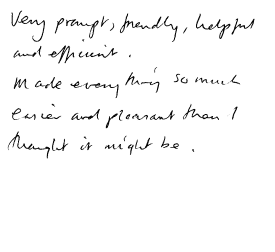 Very prompt, friendly, helpful
and efficient.
Made everything so much
easier and pleasant than I
thought it might be.